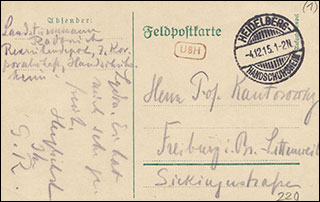 (1)
Absender:
Landsturmmann
Radbruch
Rekrutendepot, 7. Kor-
poralschaft, Handschuhs-
heim
Feldpostkarte
UBH
HEIDELBERG
-4.12.15. 1-2N.
HANDSCHUHSHEIM
Herrn Prof. Kantorowicz
Freiburg i. Br. - Littenweiler
Sickingenstraße
220
Lydia. Er hat
mich sehr ge-
freut.
Herzlichst
Ihr
G. R.